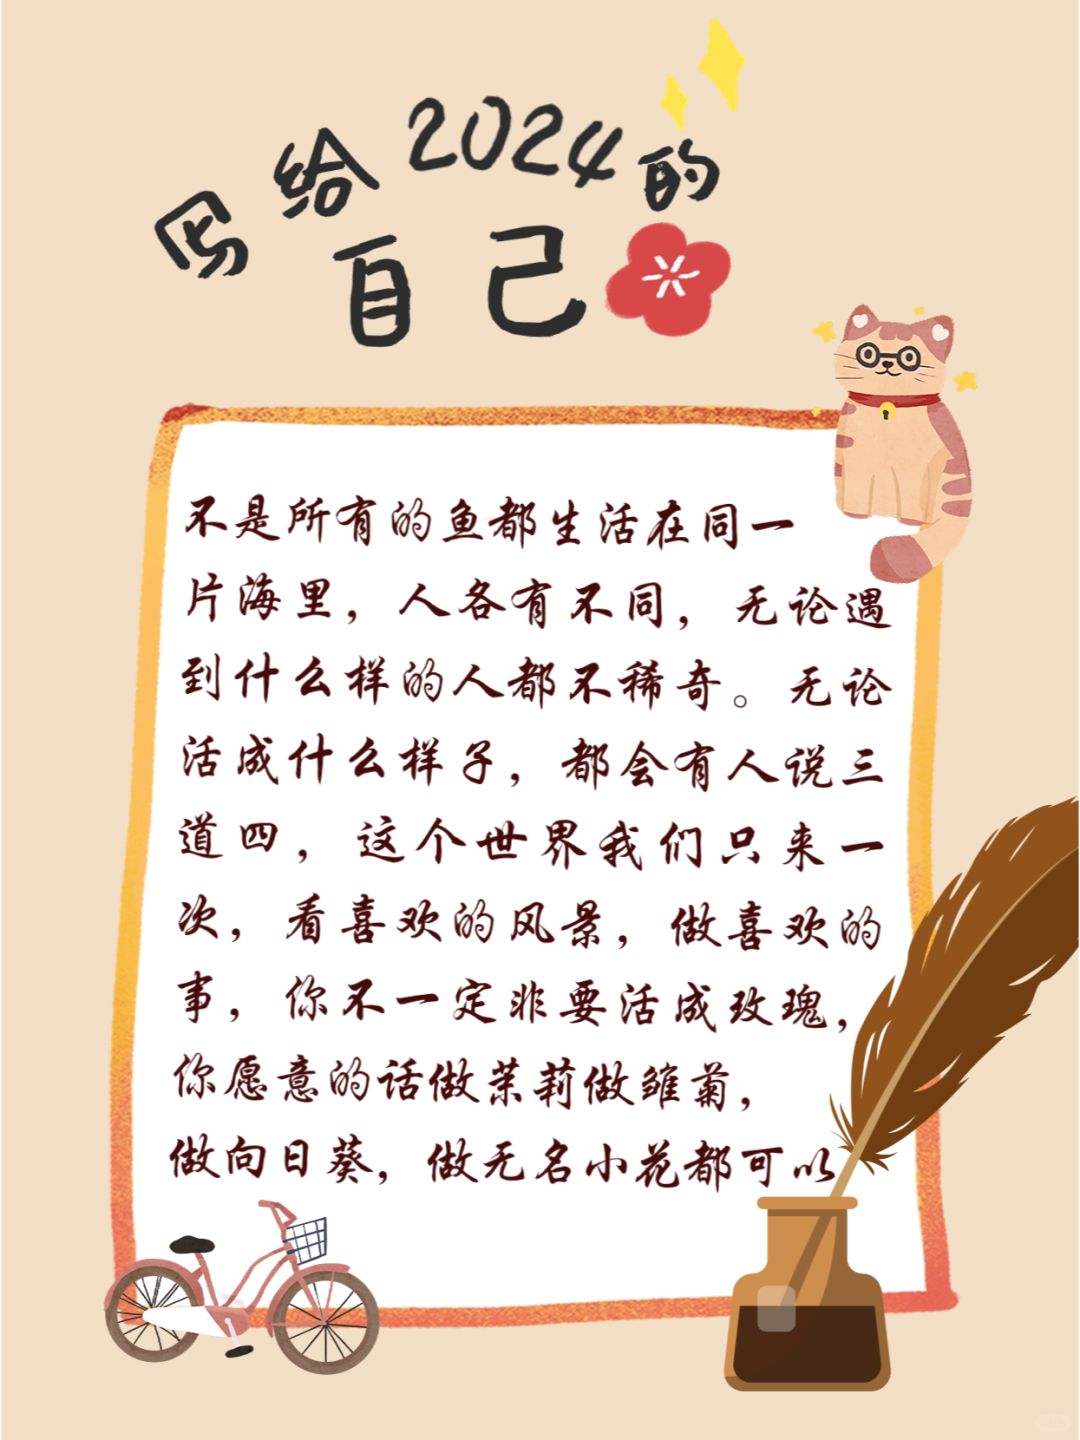 写给2024的
自己
不是所有的鱼都生活在同一
片海里，人各有不同，无论遇
到什么样的人都不稀奇。无论
活成什么样子，都会有人说三
道四，这个世界我们只来一
次，看喜欢的风景，做喜欢的
事，你不一定非要活成玫瑰，
你愿意的话做茉莉做雏菊，
做向日葵，做无名小花都可以